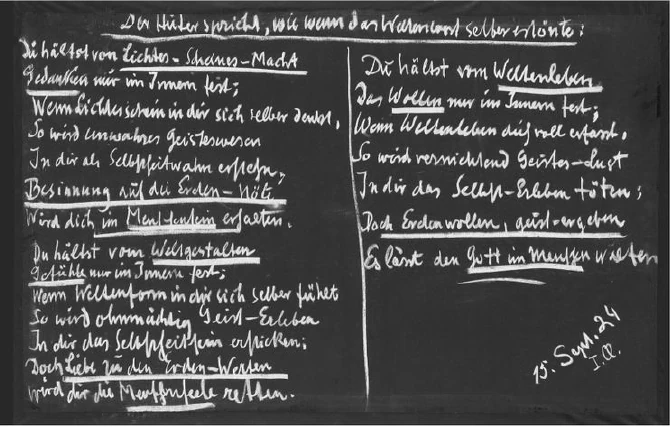 Der Hüter spricht, wie wenn das Weltenwort selber ertönte:
Du hältst von Lichtes-Scheines-Macht
Gedanken nur im Innern fest;
Wenn Lichtesschein in dir sich selber denkt,
So wird unwahres Geisteswesen
In dir als Selbstheitwahn erstehn;
Besinnung auf die Erden-Nöte
Wird dich im Menschensein erhalten.
Du hältst vom Weltgestalten
Gefühle nur im Innern fest;
Wenn Weltenform in dir sich selber fühlt
So wird ohnmächtig Geist-Erleben
In dir das Selbstheitsein ersticken;
Doch Liebe zu den Erden-Werten
Wird dir die Menschenseele retten.
Du hältst vom Weltenleben
Das Wollen nur im Innern fest;
Wenn Weltenleben dich voll erfasst,
So wird vernichtend Geistes-Lust
In dir das Selbst-Erleben töten;
Doch Erdenwollen, geist-ergeben
Es lässt den Gott im Menschen walten
15. Sept. 24